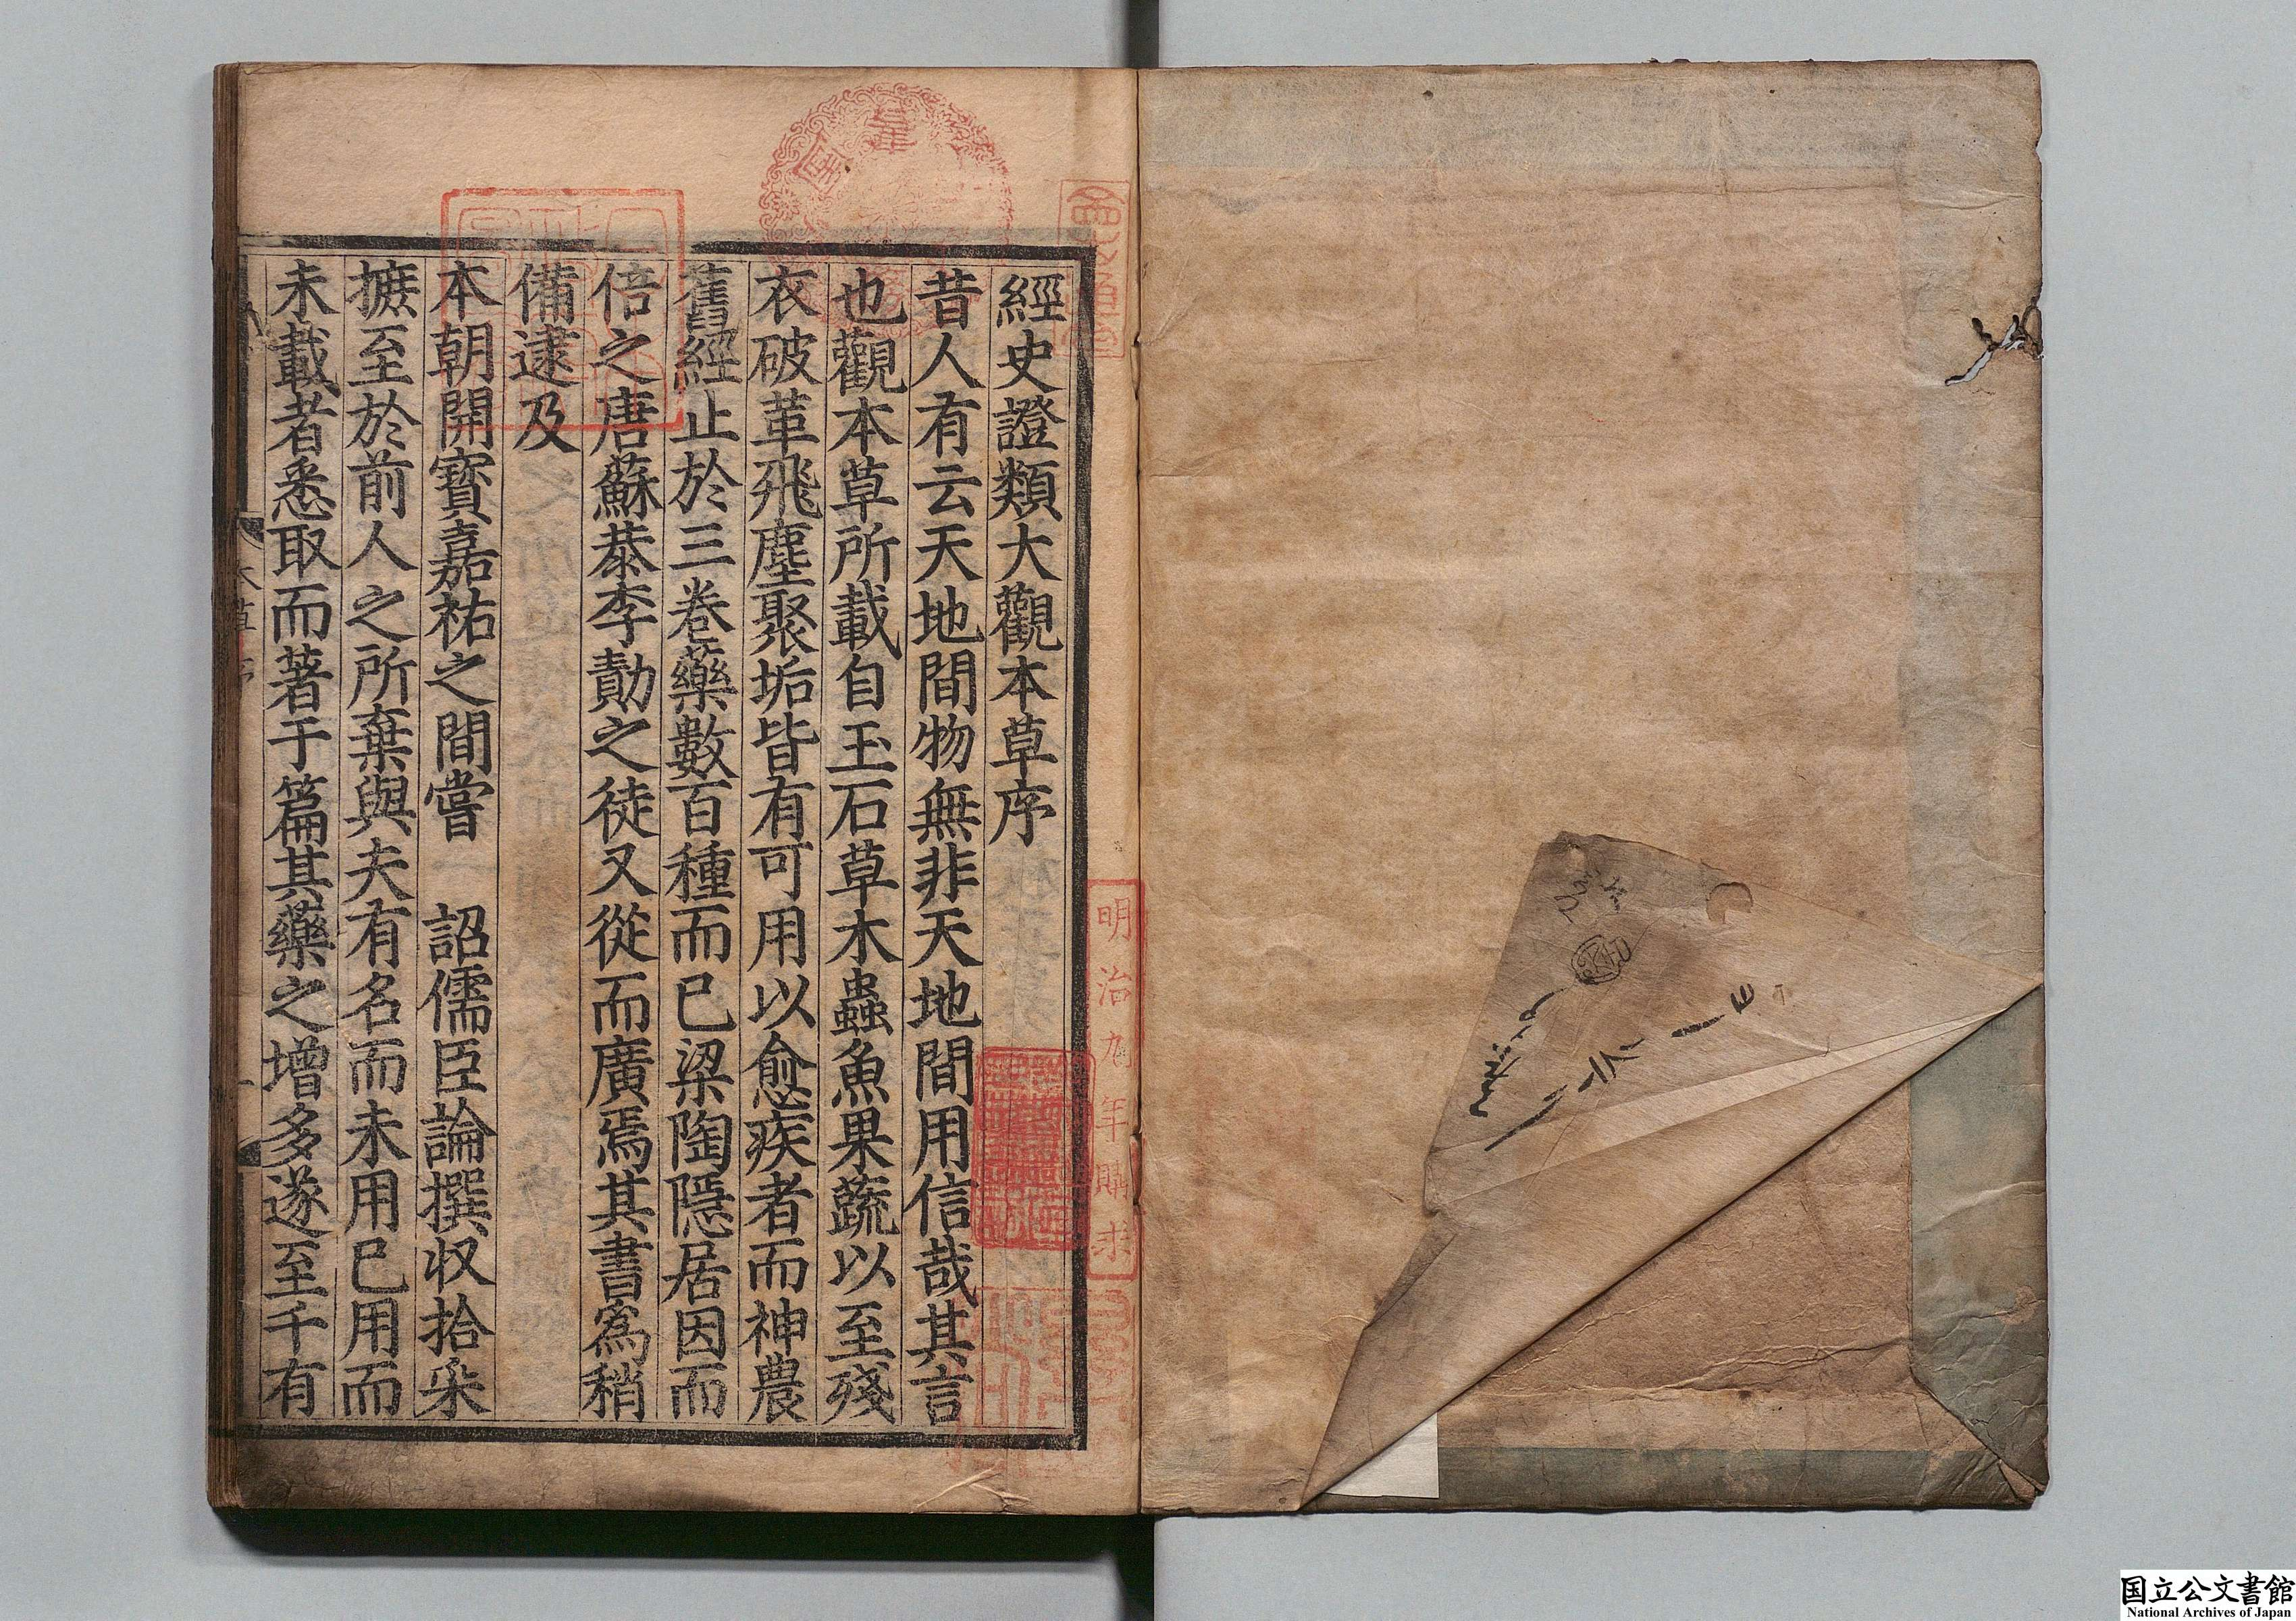 經史證類大觀本草序
昔人有云天地間物無非天地間用信哉其言
也觀本草所載自玉石草木蟲魚果蔬以至殘
衣破革飛塵聚垢皆有可用以愈疾者而神農
舊經止於三卷藥數百種而已梁陶隱居因而
倍之唐蘇恭李勣之徒又從而廣焉其書爲稍
備逮及
本朝開寶嘉祐之間嘗　詔儒臣論撰収拾采
摭至於前人之所棄與夫有名而未用已用而
未載者悉取而著于篇其藥之增多遂至千有
明治九年購求
国立公文書館
National Archives of Japan